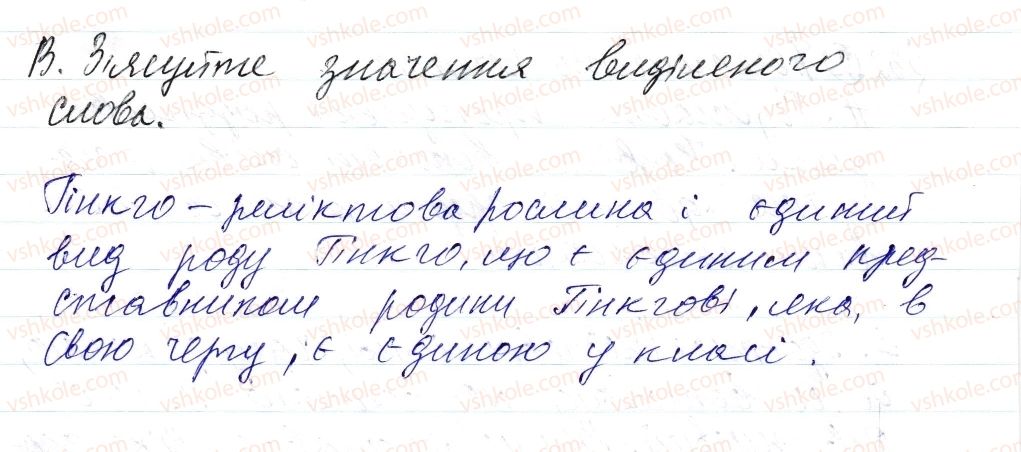 В. З'ясуйте значення виділеного
слова.
Гінкго – реліктова рослина і єдиний
вид роду Гінкго, що є єдиним пред-
ставником родини Гінкгові, яка, в
свою чергу, є єдиною у класі.